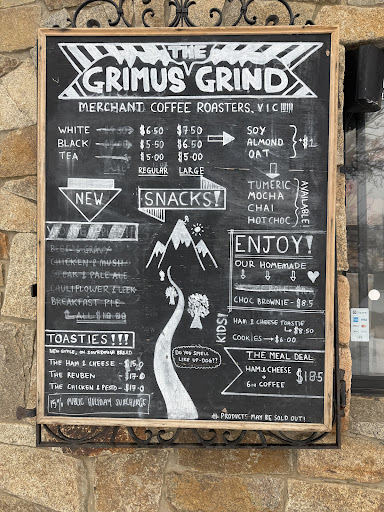 THE
GRIMUS GRIND
MERCHANT COFFEE ROASTERS, VIC !!!!!
WHITE $6.50 $7.50
BLACK $5.50 $6.50
TEA $5.00 $5.00
REGULAR LARGE
SOY
ALMOND
OAT
$1
TUMERIC
MOCHA
CHAI
HOTCHOC
AVAILABLE!
NEW
SNACKS!
BEEF & GRAVY
CHICKEN & MUSH
OAK & PALE ALE
CAULIFLOWER & LEEK
BREAKFAST PIE
ALL
ENJOY!
OUR HOMEMADE
CHOC BROWNIE - $8.5
KIDS!
HAM & CHEESE TOASTIE
$8.50
COOKIES $6.00
TOASTIES!!!
ON SOURDOUGH BREAD
THE HAM & CHEESE -
THE REUBEN - $17.0
THE CHICKEN & PESTO - $17.0
15% PUBLIC HOLIDAY SURCHARGE
DO YOU SMELL
LIKE UP-DOG??
THE MEAL DEAL
HAM & CHEESE
+
COFFEE
$18.5
PRODUCTS MAY BE SOLD OUT!